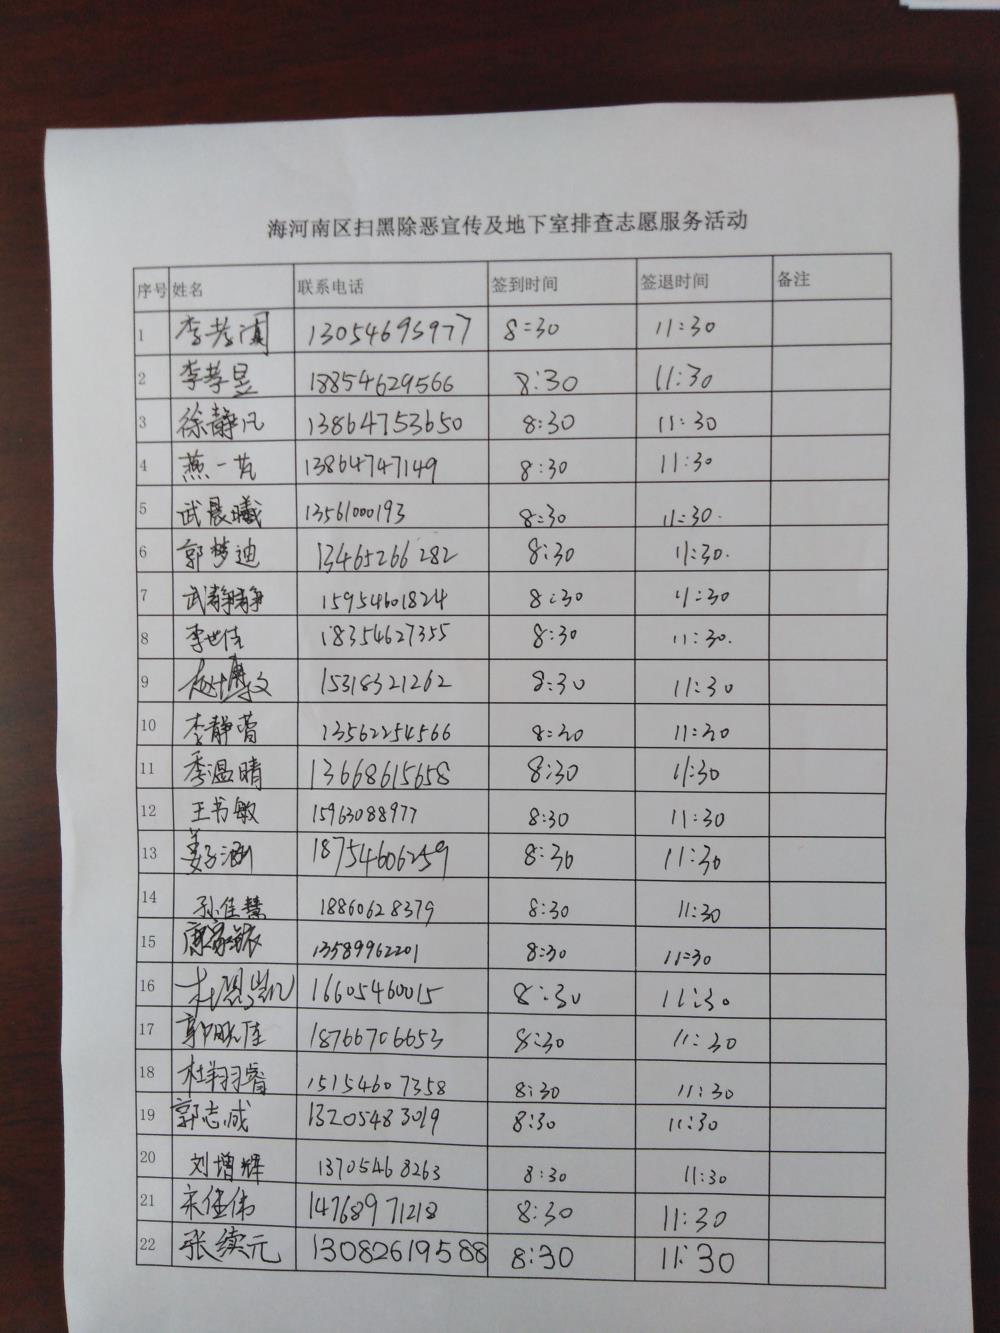 海河南区扫黑除恶宣传及地下室排查志愿服务活动
序号 姓名 联系电话 签到时间 签退时间 备注
1 李孝闻 13054693977 8:30 11:30
2 李孝昱 18854629566 8:30 11:30
3 徐静凡 13864753650 8:30 11:30
4 燕一芃 13864747149 8:30 11:30
5 武晨曦 13561000193 8:30 11:30.
6 郭梦迪 13465266282 8:30 11:30.
7 武静静 15954601824 8:30 11:30
8 李世佳 18354627355 8:30 11:30.
9 赵博文 15318321262 8:30 11:30
10 李静蕾 13562254566 8:30 11:30
11 季温晴 13668615658 8:30 11:30
12 王书敏 15963088977 8:30 11:30
13 姜子涵 18754606259 8:30 11:30
14 孙佳慧 18860628379 8:30 11:30
15 13589962201 8:30 11:30
16 杜恩凯 16605460015 8:30 11:30
17 郭晓佳 18766706653 8:30 11:30
18 杜翔睿 15154607358 8:30 11:30
19 郭志成 13205483019 8:30 11:30
20 刘增辉 13705468263 8:30 11:30
21 宋佳伟 14768971218 8:30 11:30
22 张续元 13082619588 8:30 11:30